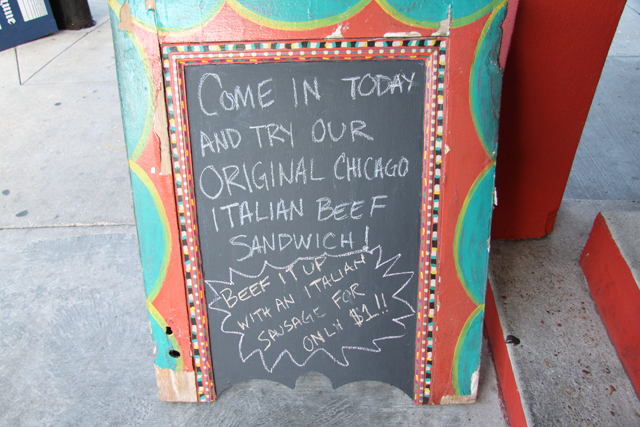 COME IN TODAY
AND TRY OUR
ORIGINAL CHICAGO
ITALIAN BEEF
SANDWICH!
BEEF IT UP
WITH AN ITALIAN
SAUSAGE FOR
ONLY $1!!